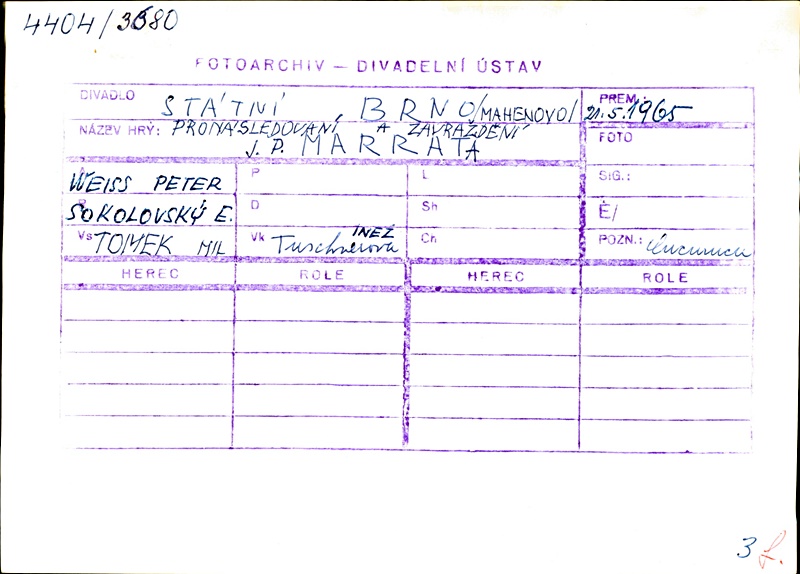 4404/3680
FOTOARCHIV – DIVADELNÍ ÚSTAV
DIVADLO STÁTNÍ, BRNO /MAHENOVO/
PREM. 21.5.1965
NÁZEV HRY: PRONÁSLEDOVÁNÍ A ZAVRAŽDĚNÍ
J. P. MARRATA
FOTO
WEISS PETER P L SIG.:
SOKOLOVSKÝ E. D Sh É/
Vs TOMEK MIL Vk INEZ Tuschnerová Ch POZN.:
HEREC ROLE HEREC ROLE
3